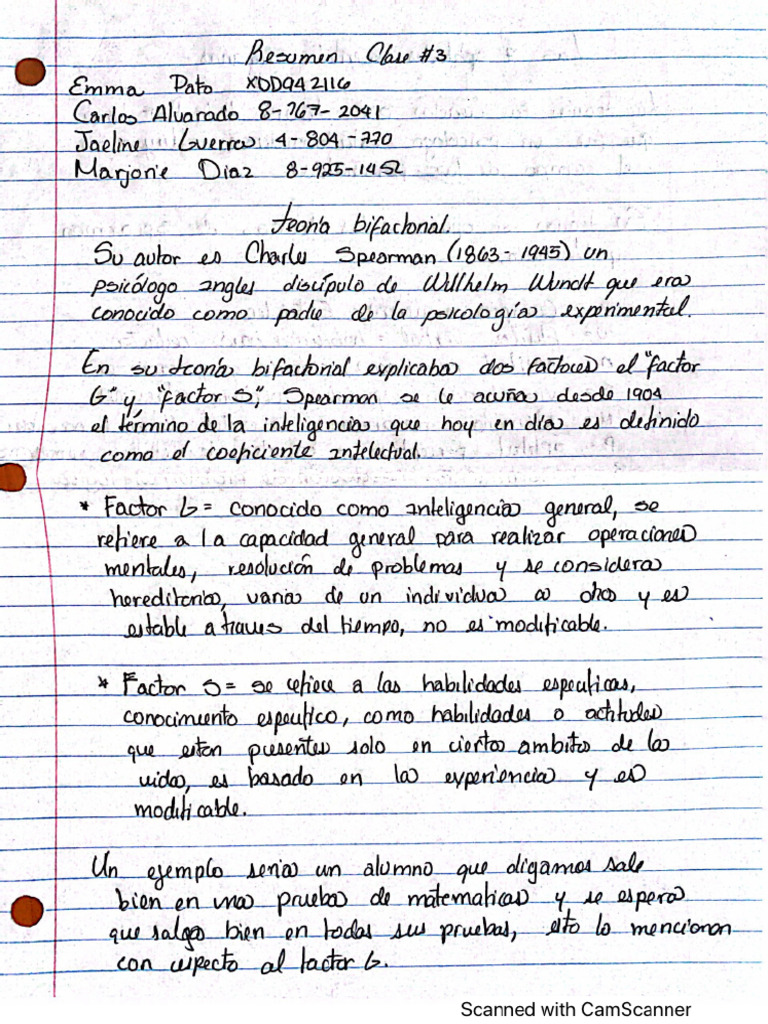 Resumen Clase #3
Emma Pato XDD942116
Carlos Alvarado 8-767-2041
Jaeline Guerra 4-804-770
Marjorie Diaz 8-925-1452
teoría bifactorial.
Su autor es Charles Spearman (1863-1945) un
psicólogo ingles discípulo de Willhelm Wundt que era
conocido como padre de la psicología experimental.
En su teoría bifactorial explicaba dos factores el "factor
G" y "factor S", Spearman se le acuña desde 1904
el término de la inteligencia que hoy en día es definido
como el coeficiente intelectual.
* Factor G = conocido como inteligencia general, se
refiere a la capacidad general para realizar operaciones
mentales, resolución de problemas y se considera
hereditaria, varia de un individuo a otro y es
estable a traves del tiempo, no es modificable.
* Factor S = se refiere a las habilidades especificas,
conocimiento especifico, como habilidades o actitudes
que estan presentes solo en cierto ambito de la
vida, es basado en la experiencia y es
modificable.
Un ejemplo seria un alumno que digamos sale
bien en una prueba de matematicas y se espera
que salga bien en todas sus pruebas, esto lo mencionan
con respecto al factor G.
Scanned with CamScanner